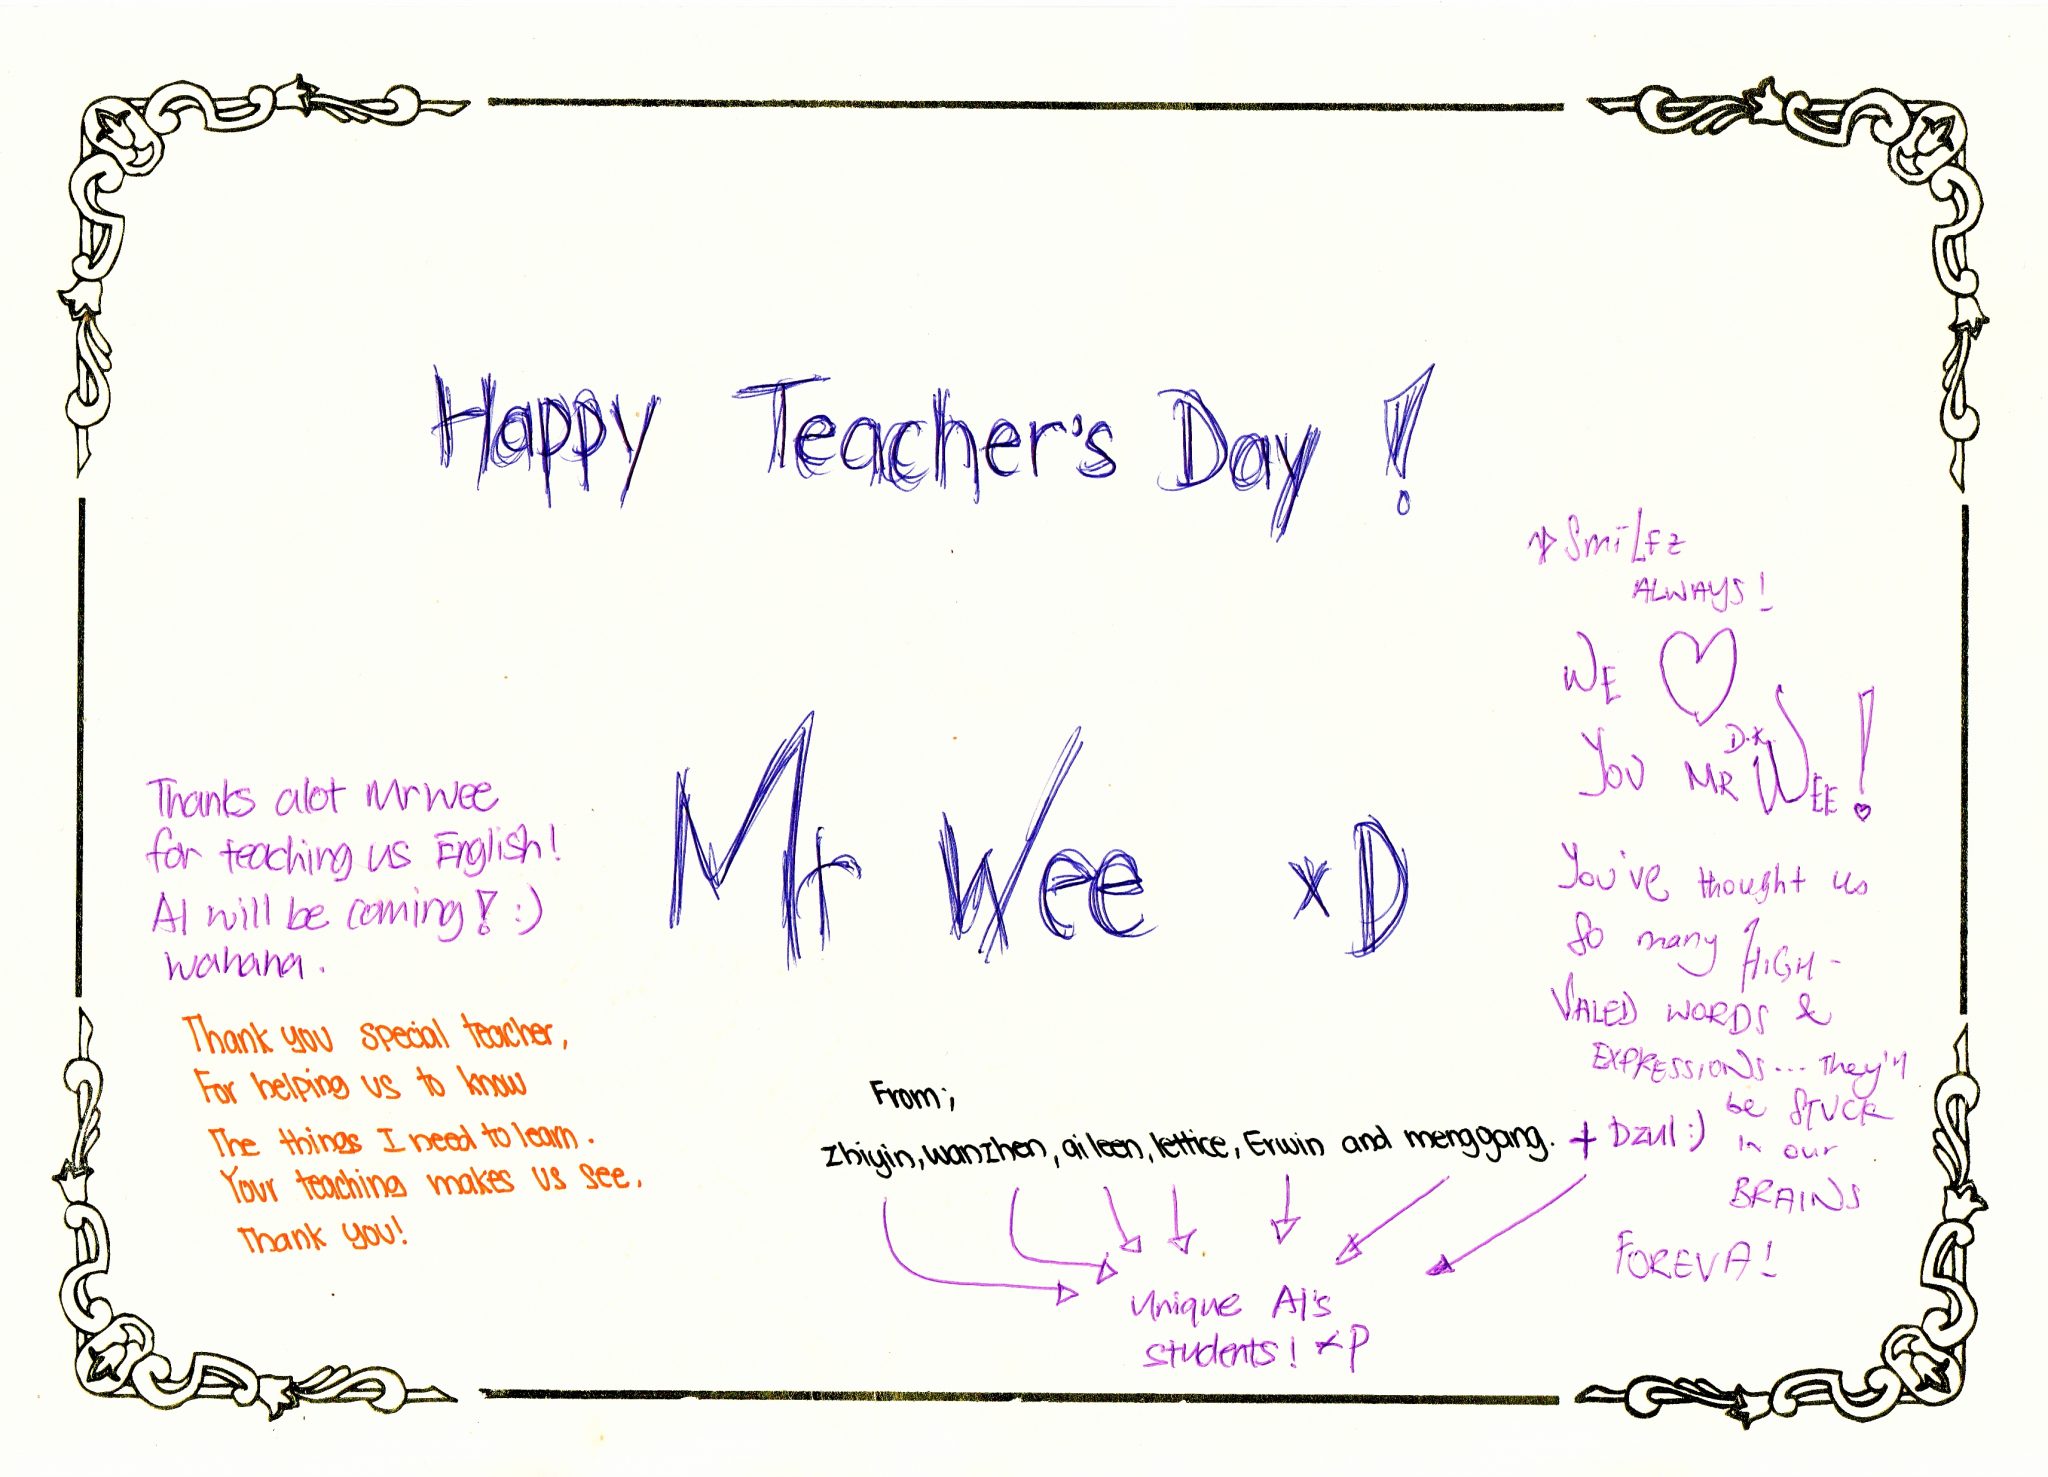 Happy Teacher's Day !
Mr Wee xD
Thanks alot Mr Wee
for teaching us English!
A1 will be coming! :)
wahaha.
Thank you special teacher,
For helping us to know
The things I need to learn.
Your teaching makes us see,
Thank you!
From;
zhiyin, wanzhen, aileen, lettice, Erwin and menggang. + Dzul :)
Unique A1's
students! xP
SmiLEz
ALWAYS!
WE ♡
YOU MR D.K. WEE!
You've thought us
so many HIGH-
VALED WORDS &
EXPRESSIONS... They'll
be STUCK
in our
BRAINS
FOREVA!